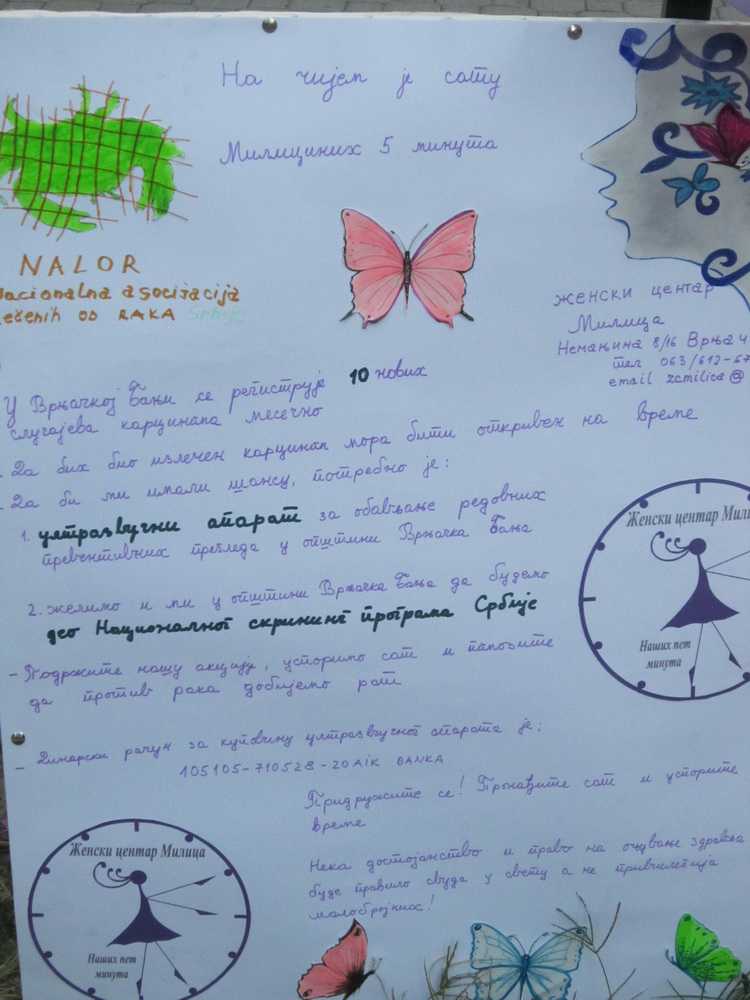 На чијем је сату
Милициних 5 минута
NALOR
Nacionalna asocijacija
Lečenih od RAKA Srbije
женски центар
Милица
Немањина 8/16 Врња
тел 063/612-67
email zcmilica@
У Врњачкој Бањи се региструје 10 нових
случајева карцинама месечно
- Да бих био излечен карцинам мора бити откривен на време
- Да би ми имали шансу, потребно је:
1. ултразвучни апарат за обављање редовних
превентивних прегледа у општини Врњачка Бања
2. желимо и ми у општини Врњачка Бања да будемо
део Националног скрининг програма Србије
- Подржите нашу акцију, успоримо сат и
да против рака добијемо рат
- Динарски рачун за куповину ултразвучног апарата је:
105105-710528-20 AIK BANKA
Придружите се! Пронађите сат и успорите
време
Нека достојанство и право на очување здравља
буде правило свуда у свету а не привилегија
малобројних!
Женски центар Мили
Наших пет
минута
Женски центар Милица
Наших пет
минута